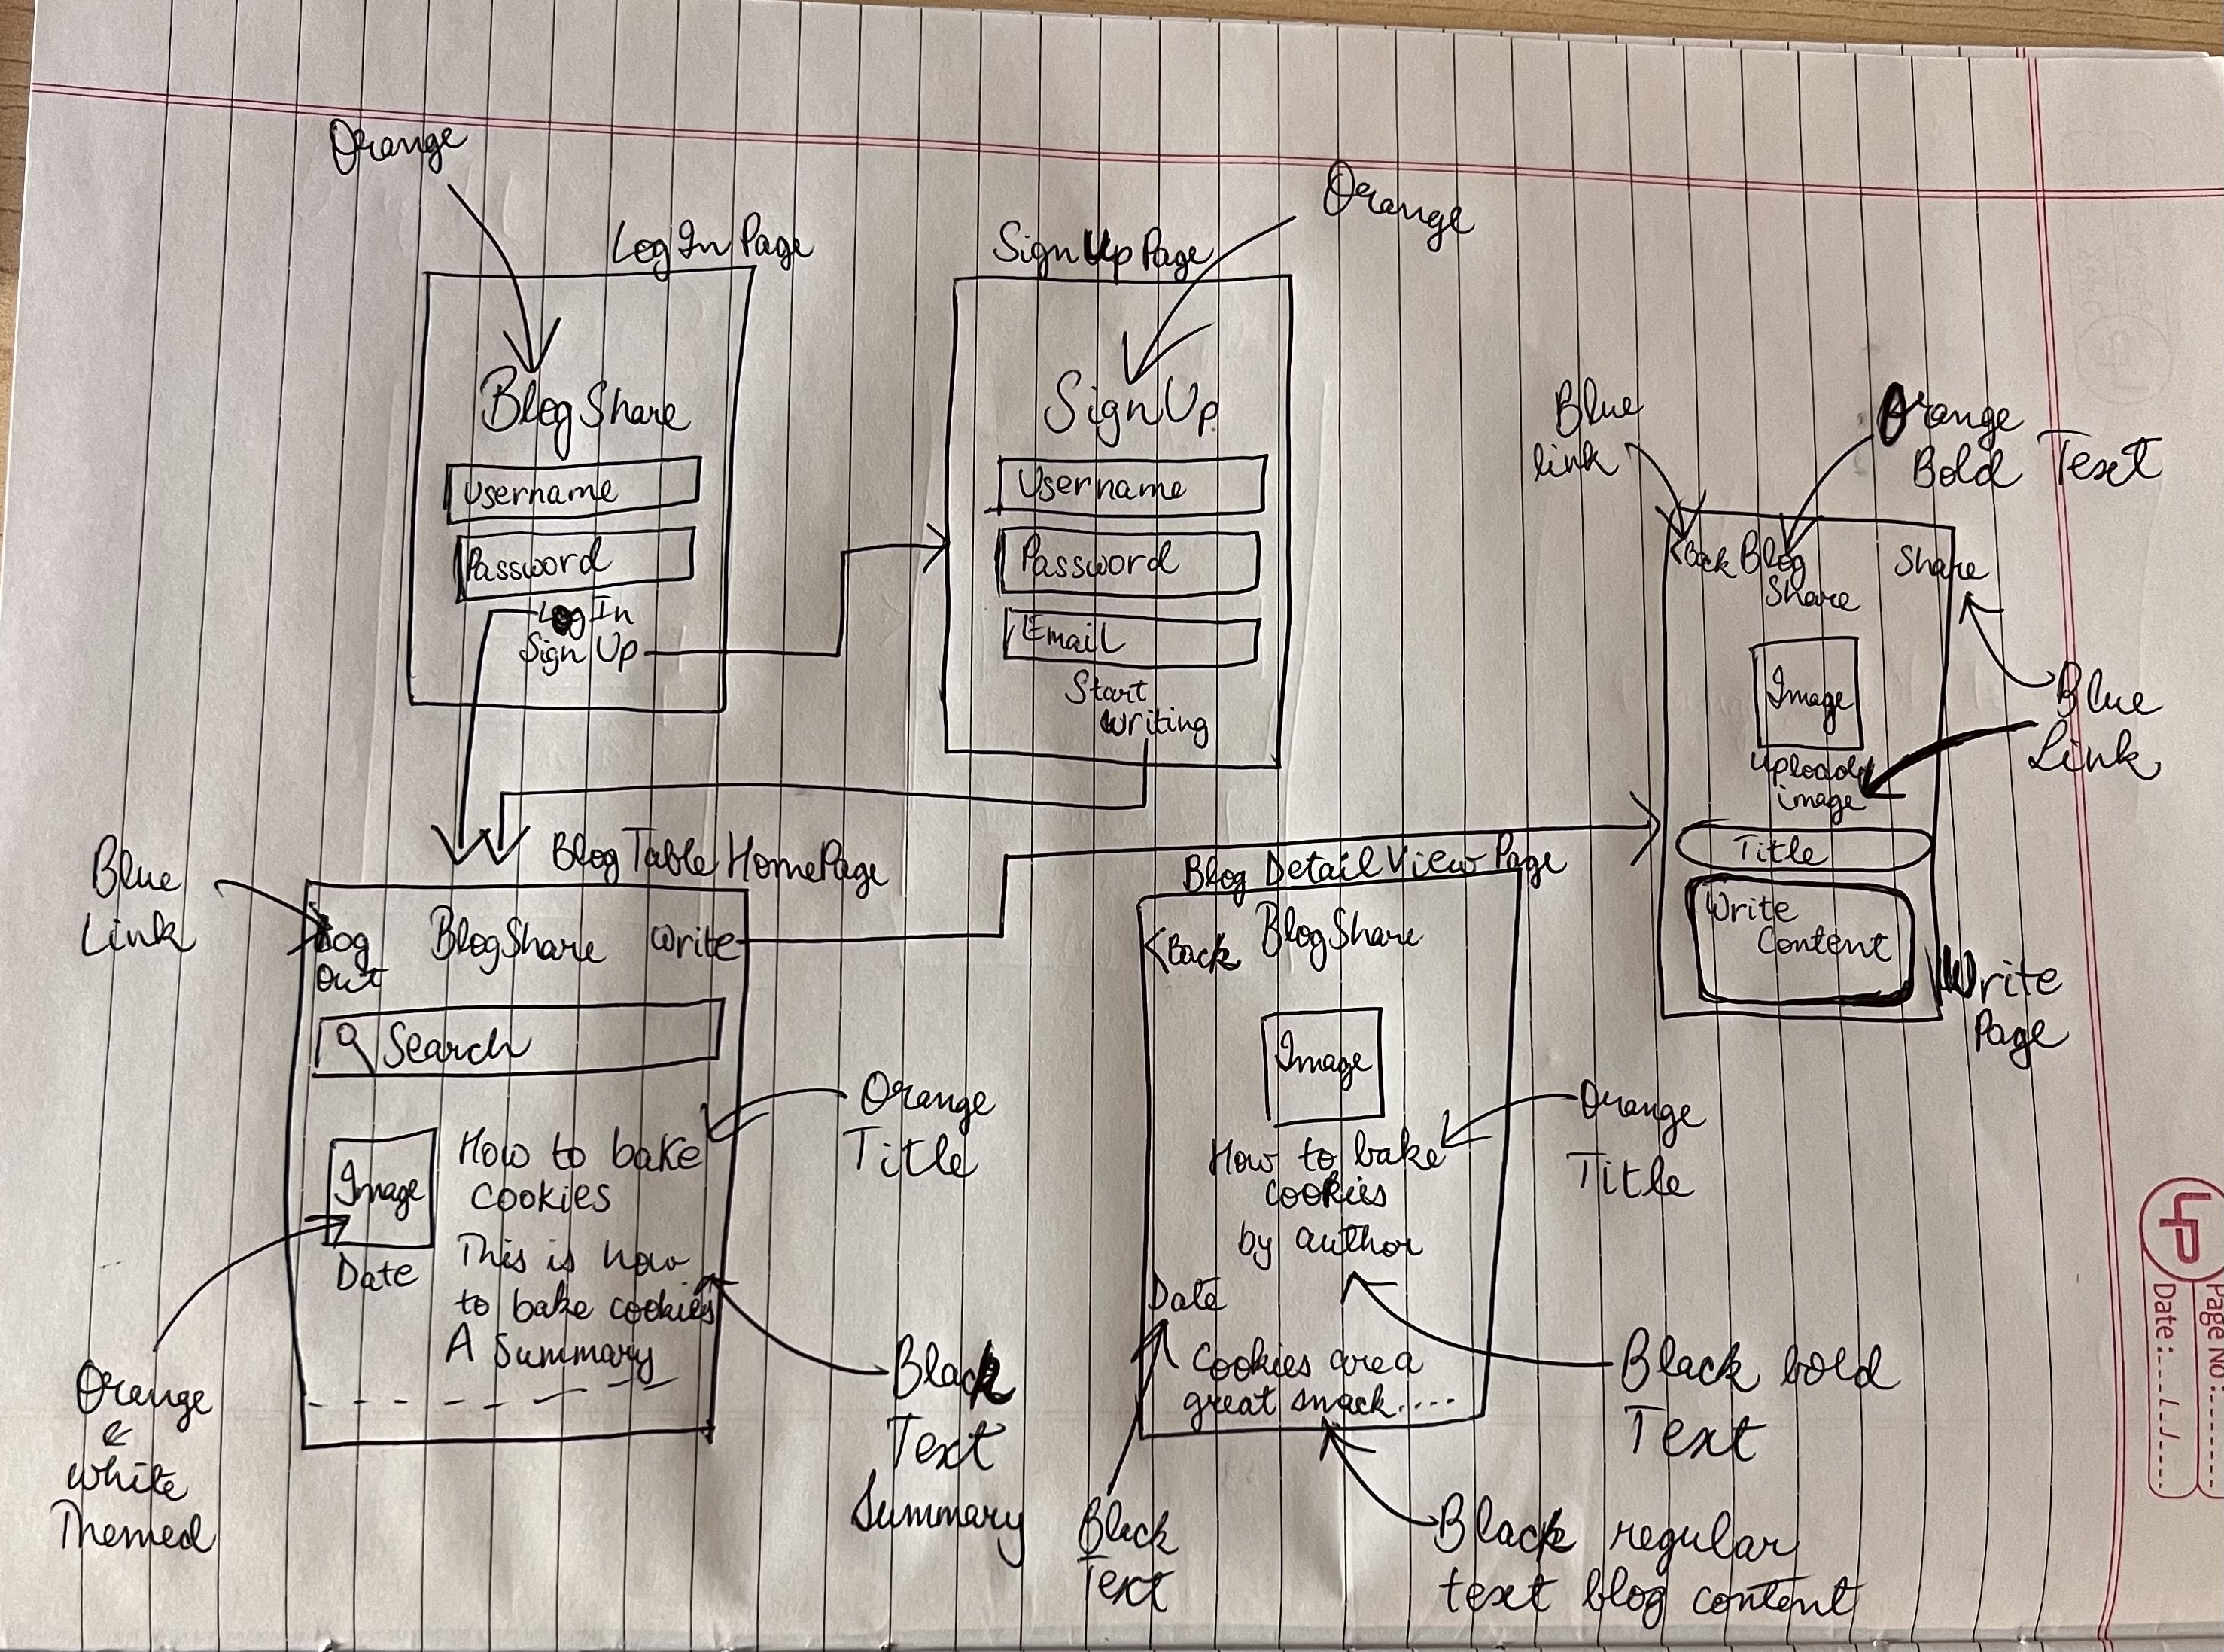 Orange
Log In Page
Blog Share
Username
Password
Log In
Sign Up
Orange
Sign Up Page
Sign Up
Username
Password
Email
Start
Writing
Blue
link
Orange
Bold Text
<Back Blog
Share
Share
Image
Upload
image
Blue
Link
Title
Write
Content
Write
Page
Blog Table HomePage
Blue
Link
Log
Out
BlogShare
Write
Search
Image
Date
How to bake
cookies
This is how
to bake cookies
A Summary
Orange
Title
Orange
&
white
Themed
Black
Text
Summary
Blog Detail View Page
<Back
BlogShare
Image
How to bake
cookies
by author
Date
Cookies are a
great snack....
Orange
Title
Black bold
Text
Black
Text
Black regular
text blog content
Page No:
Date: